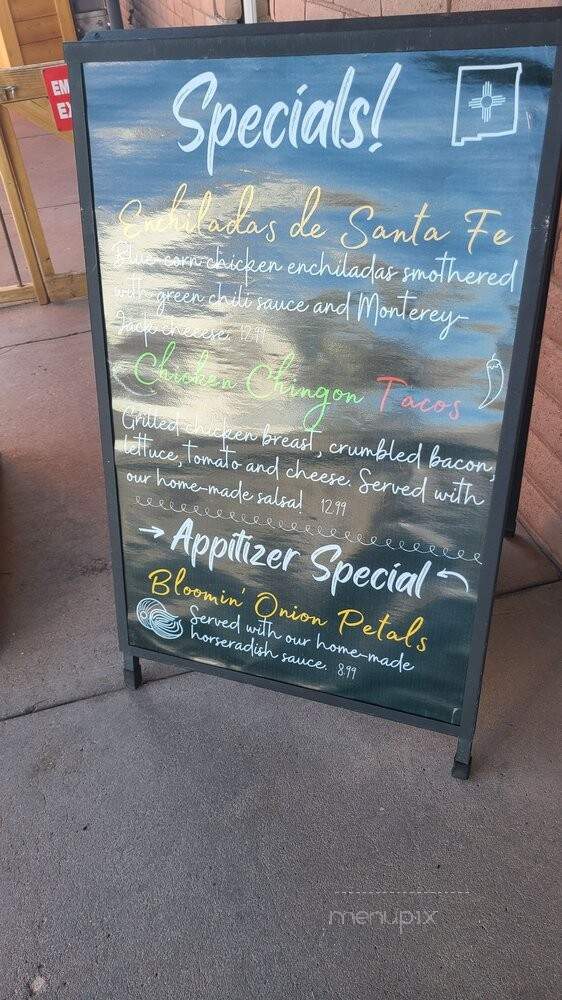 EM
EX
Specials!
Enchiladas de Santa Fe
Blue corn chicken enchiladas smothered
with green chili sauce and Monterey-
Jack cheeese. 12.99
Chicken Chingon Tacos
Grilled chicken breast, crumbled bacon,
lettuce, tomato and cheese. Served with
our home-made salsa! 12.99
Appitizer Special
Bloomin' Onion Petals
Served with our home-made
horseradish sauce. 8.99
menupix